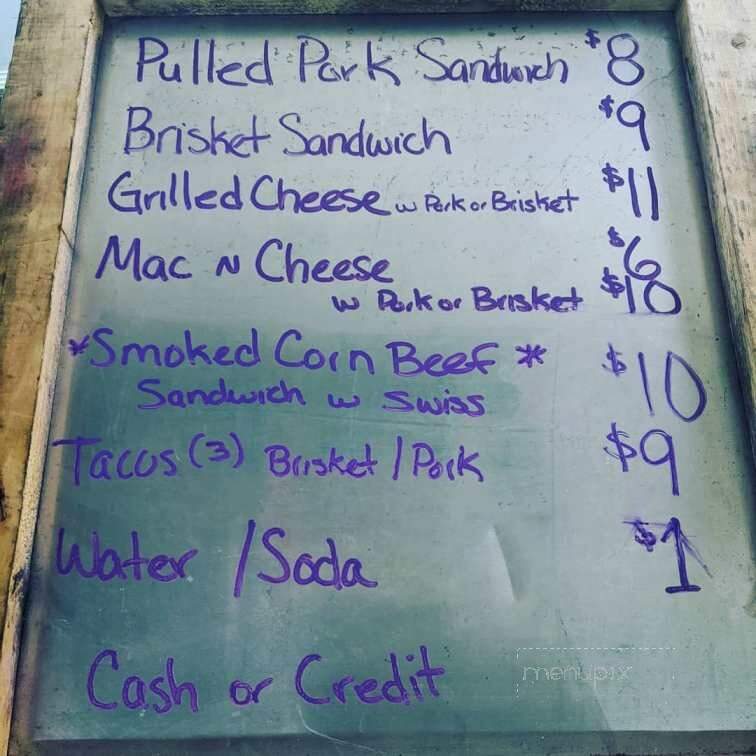 Pulled Pork Sandwich $8
Brisket Sandwich $9
Grilled Cheese w Pork or Brisket $11
Mac N Cheese $6
w Pork or Brisket $10
*Smoked Corn Beef* $10
Sandwich w Swiss
Tacos (3) Brisket / Pork $9
Water / Soda $1
Cash or Credit
menupix